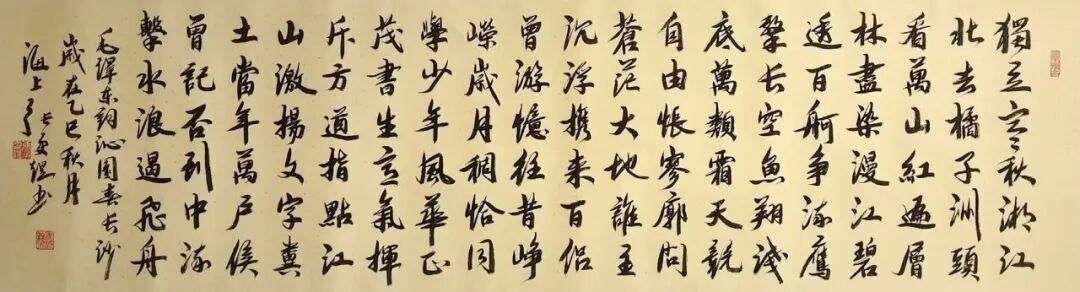 獨立寒秋湘江
北去橘子洲頭
看萬山紅遍層
林盡染漫江碧
透百舸争流鷹
擊长空魚翔浅
底萬類霜天競
自由悵寥廓問
蒼茫大地誰主
沉浮携来百侣
曾游憶往昔峥
嶸歲月稠恰同
學少年風華正
茂書生意氣揮
斥方遒指點江
山激揚文字糞
土當年萬户侯
曾記否到中流
擊水浪遏飛舟
毛澤东詞沁園春长沙
歲在乙巳秋月
海上
书